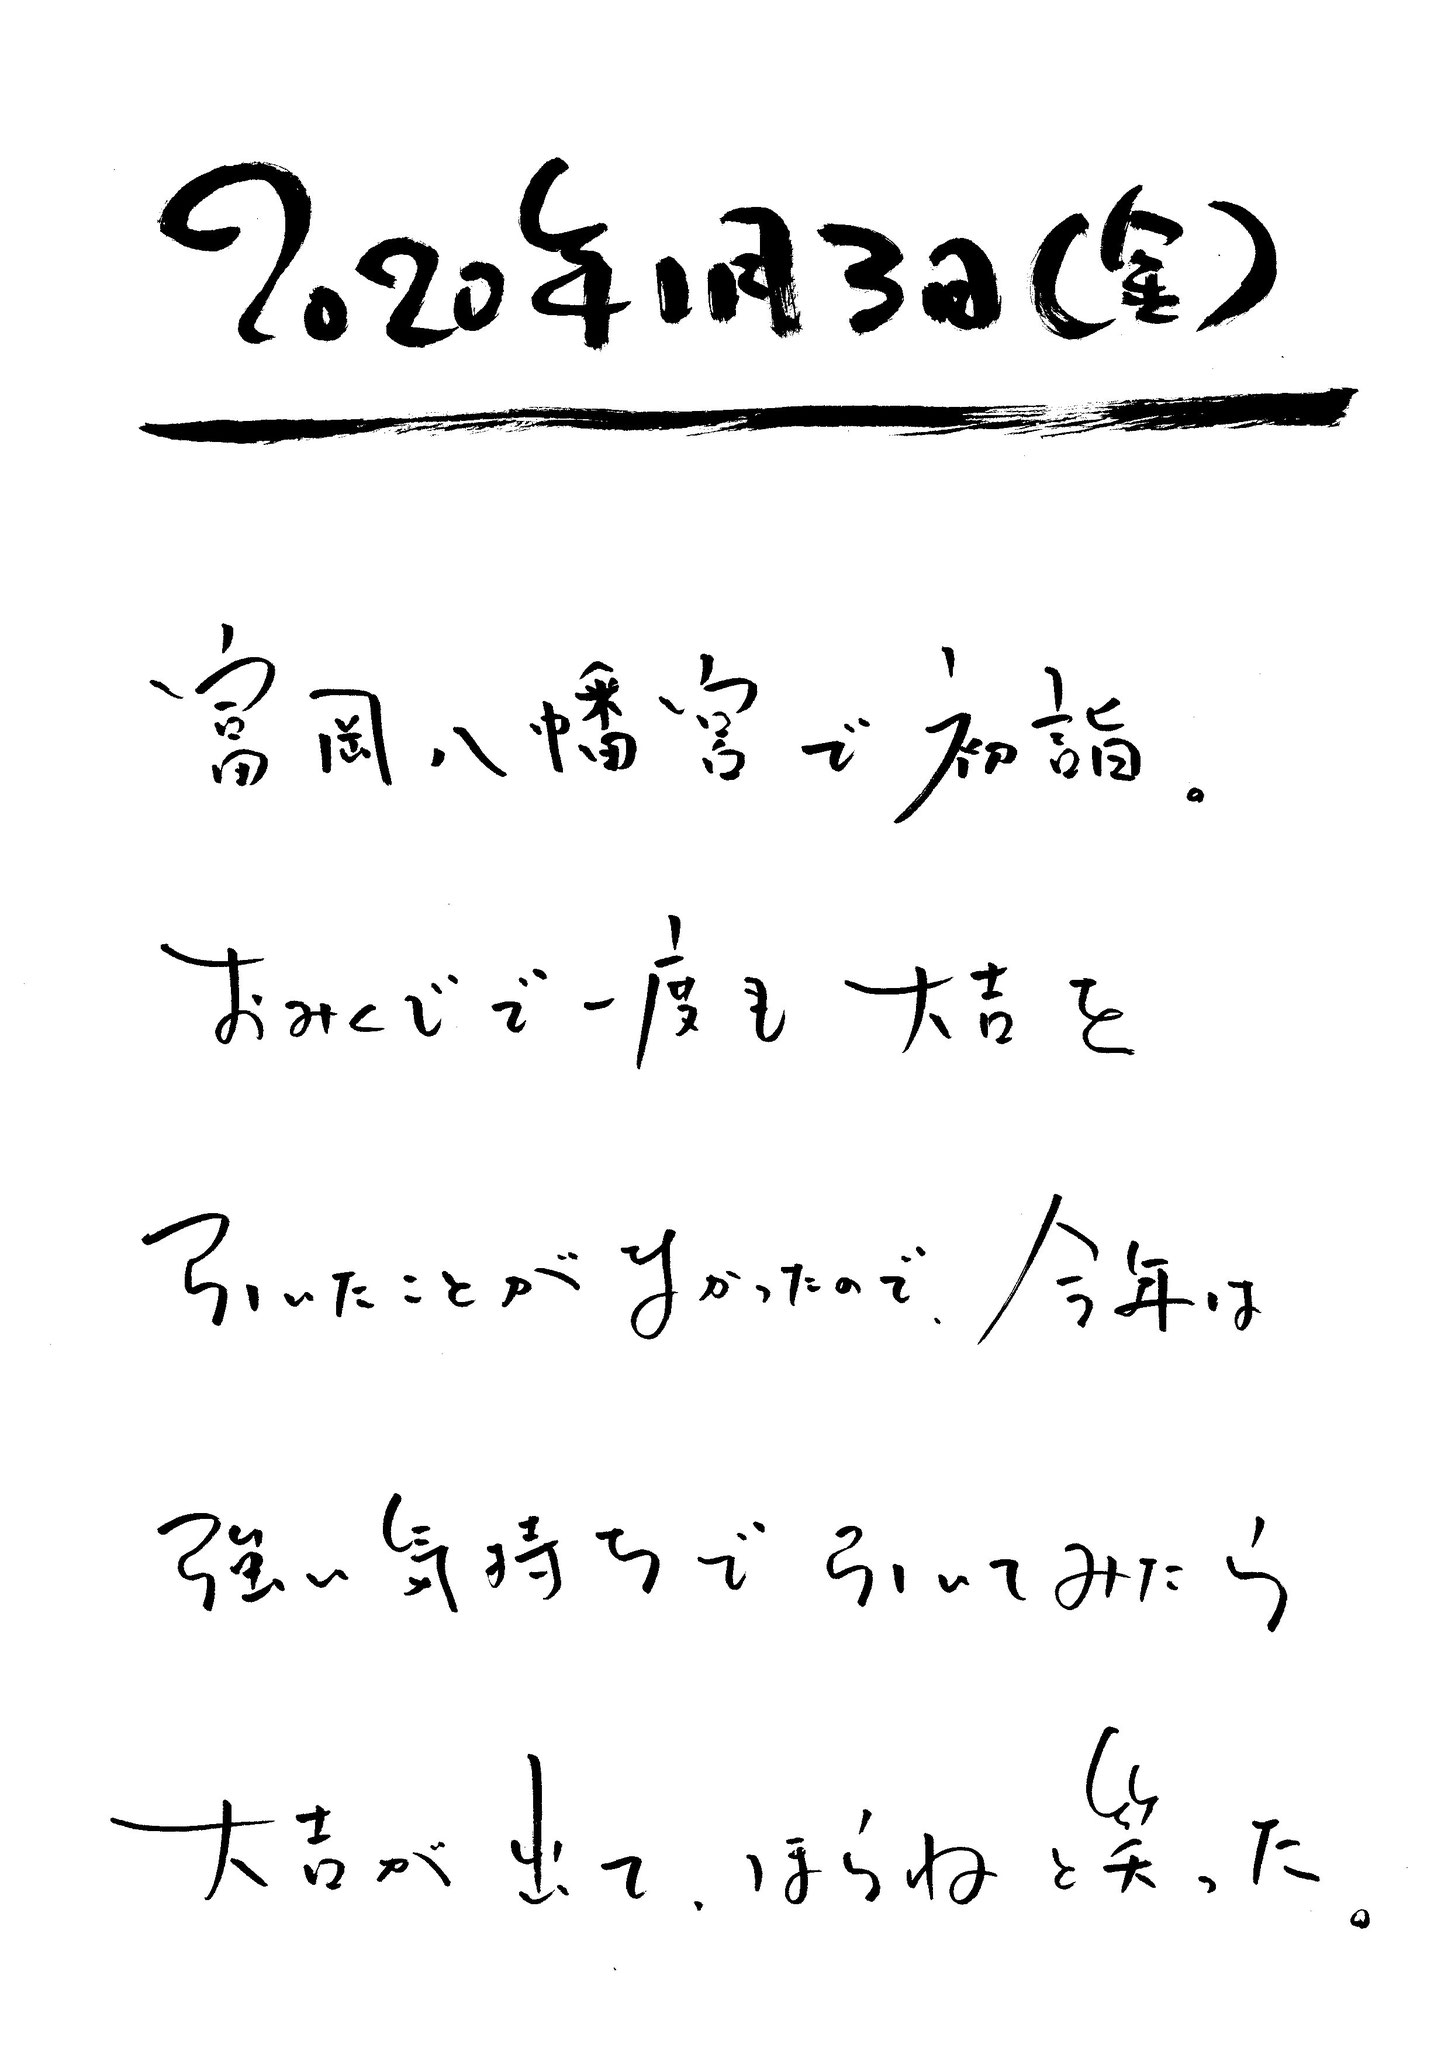 2020年1月3日(金)
富岡八幡宮で初詣。
おみくじで一度も大吉を
引いたことがなかったので、今年は
強い気持ちで引いてみたら
大吉が出て、ほらねと笑った。